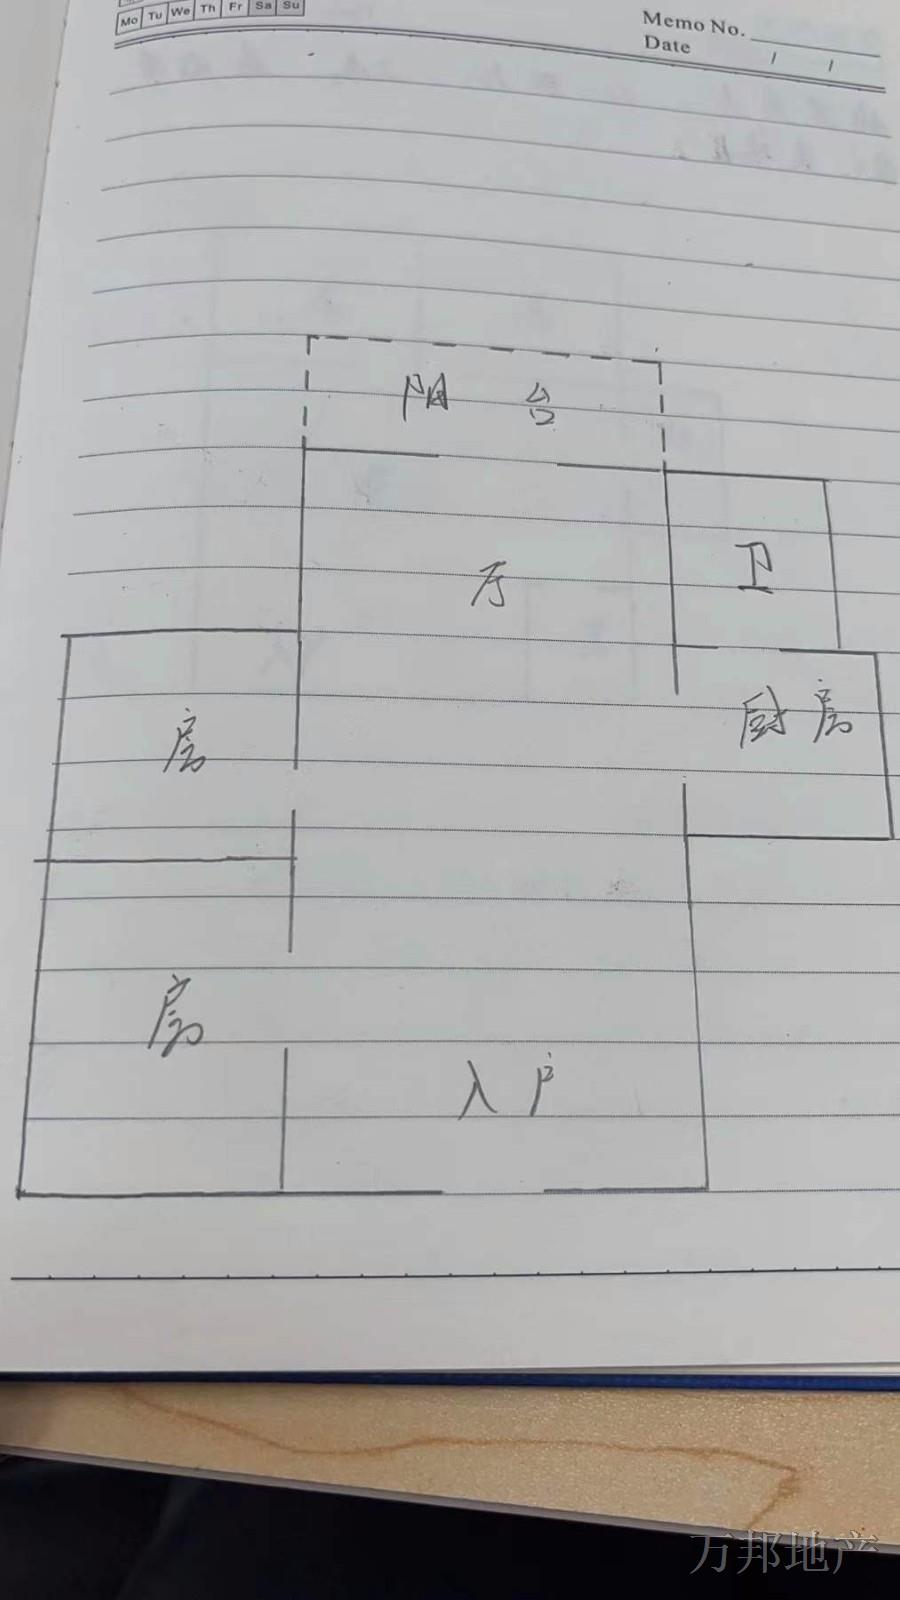 Mo Tu We Th Fr Sa Su
Memo No.
Date / /
阳台
厅
卫
房
厨房
房
入户
万邦地产